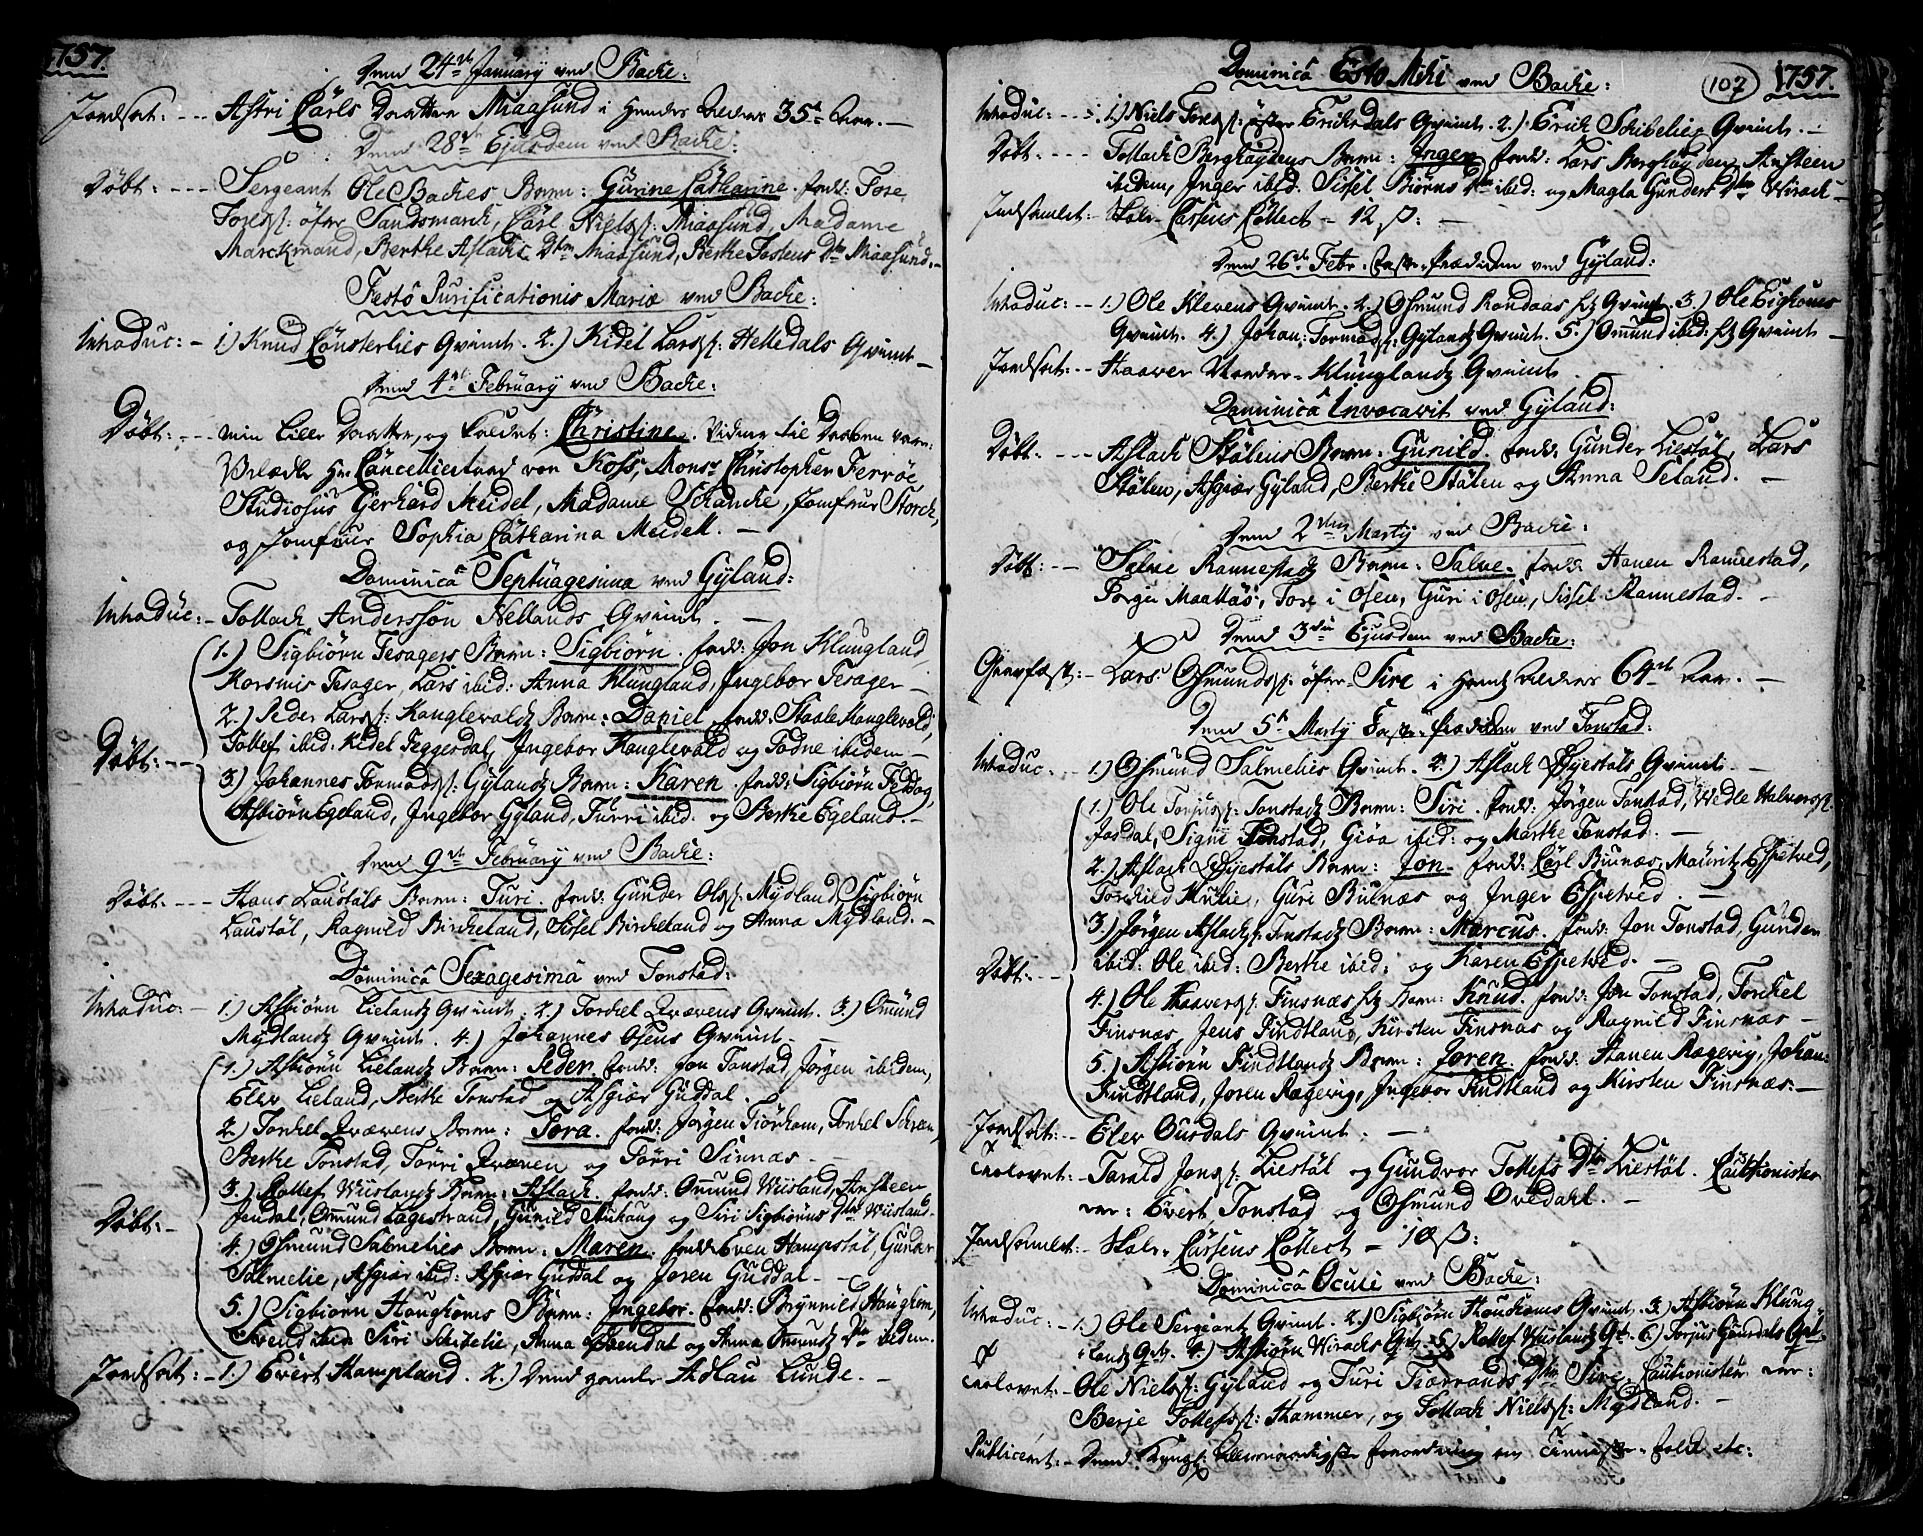 1757.
Dend 24de January ved Backe:
Jordfæst: --- Astri Carls Daatter Miaasund i Hendes Alders 35te Aar. —
Dend 28de Ejusdem ved Backe:
Døbt: --- Sergeant Ole Backes Barn: Gurine Catharine. fadd: Tore
Tores: øfre Sandsmarck, Carl Niels: Miaasund, Madame
Marckmand, Berthe Aslachs Dtr Miaasund, Berthe Tostens Dtr Miaasund. —
Festo Purificationis Mariæ ved Backe:
Introduc: - 1) Knud Consterlies Qvinde. 2.) Kidel Lars: Helledals Qvinde —
Dend 4de February ved Backe:
Døbt: --- min Lille Daatter, og kaldet: Christine. Vidner til Daaben vare:
Velædle Hr Cancellieraad von Koss, Monsr Christopher Ferrøe,
Studiosus Gerhard Meidel, Madame Schancke, Jomfrue Storck,
og Jomfrue Sophia Catharina Meidell. —
Dominica Septuagesima ved Gyland:
Introduc: - Tollach Andersson Nellands Qvinde. —
1.) Sigbiørn Fesagers Barn: Sigbiørn. fadd: Jon Klungland,
Rasmus Fesager, Lars ibid: Anna Klungland, Ingebor Fesager —
2.) Peder Lars: Kanglevaldz Barn: Daniel. fadd: Staale Kanglevald,
Tollef ibid: Kidel Feggesdal, Ingebor Kanglevald og Todne ibidem —
Døbt: --
3) Johannes Tormods: Gylandz Barn: Karen. fadd: Sigbiørn Feddog,
Asbiørn Egeland, Ingebor Gyland, Turri ibid: og Berthe Egeland. —
Dend 9de February ved Backe:
Døbt: --- Hans Laustøls Barn: Turi. fadd: Gunder Ols: Mydland, Sigbiørn
Laustøl, Ragnild Birckeland, Sissel Birckeland og Anna Mydland. —
Dominica Sexagesima ved Tonstad:
Introduc: - 1.) Asbiørn Lielandz Qvinde. 2.) Torchel Qvævens Qvinde. 3.) Omund
Mydlandz Qvinde. 4.) Johannes Osens Qvinde. —
1.) Asbiørn Lielandz Barn: Peder. fadd: Jon Tonstad, Jørgen ibidem,
Elev Lieland, Berthe Tonstad og Asgiær Guddal.
2.) Torchel Qvævens Barn: Tora. fadd: Jørgen Tiørhom, Torchel
Berthe Tonstad, Tørri Qvæven og Tørri Sinnæs. —
3.) Rollef Wiislandz Barn: Aslach. fadd: Omund Wiisland, Ansteen
Josdal, Omund Lagestrand, Gunild Stuhaug og Siri Sigbiørns Dtr Wiisland.
Døbt: -
4.) Osmund Salmelies Barn: Maren. fadd: Even Hompstøl, Gunder
Salmelie, Asgiær ibid: Asgiær Guddal og Joren Guddal. —
5.) Sigbiørn Haughoms Barn: Ingebor. fadd: Brynnild Haughom,
Svend ibid: Siri Schibelie, Anna og Anna Omunds Dtr ibidem.
Jordfæst: - 1.) Evert Hampland. 2.) Dend gamle Adlau Lunde. —
107 1757.
Dominica Esto Mihi ved Backe:
Introduc: --: 1) Niels Tores: øfre Ericksdals Qvinde. 2.) Erich Schibelies Qvinde. —
Døbt: --- Tollach Berghøydens Barn: Inger. fadd: Lars Berghøyden, Ansteen
ibidem, Inger ibid: Sissel Biørns Dtr ibid: og Magla Gunders Dtr Hirach —
Indsamlet: - Skole-Cassens Collect — 12 ß: —
Dend 26de Febr. Faste-Prædiken ved Gyland:
Introduc: -- 1.) Ole Klevens Qvinde. 2.) Osmund Rondaas Qvinde. 3.) Ole Eighoms
Qvinde. 4.) Johan: Tormods: Gylandz Qvinde. 5.) Omund ibid: Qvinde —
Jordfæst: -- Haaver Klunglandz Qvinde. —
Dominica Invocavit ved Gyland:
Døbt: --- Aslach Stølens Barn: Gunild. fadd: Gunder Liestøl, Lars
Stølen, Asgiær Gyland, Berthe Stølen og Anna Seland. —
Dend 2den Marty ved Backe:
Døbt: -- Salve Rannestadz Barn: Salve. fadd: Hanen Rannestad,
Jørgen Maatiøs, Tore i Osen, Guri i Osen, Sissel Rannestad. —
Dend 3die Ejusdem ved Backe:
Gravfæst: - Lars Osmunds: øfre Sire i Hans Alders 64de Aar. —
Dend 5te Marty Faste-Prædiken ved Tonstad:
Introduc: -- 1.) Osmund Salmelies Qvinde. 2.) Aslach Qvinde —
1.) Ole Torjus: Tonstadz Barn: Siri. fadd: Jørgen Tonstad, Wedle Halvors:
Josdal, Signe Tonstad, Gióa ibid: og Marthe Tonstad. —
2.) Aslach Barn: Jon. fadd: Carl Buinæs, Mauritz Espetved,
Torchild Mulie, Guri Buinæs og Inger Espetved —
3.) Jørgen Aslachs: Tonstadz Barn: Marcus. fadd: Jon Tonstad, Gunder
ibid: Ole ibid: Berthe ibid: og Karen Espetved. —
Døbt: --
4.) Ole Haavers: Finsnæs Barn: Knud. fadd: Jon Tonstad, Torchel
Finsnæs, Jens Findtland, Kirsten Finsnæs og Ragnild Finsnæs —
5.) Asbiørn Findtlandz Barn: Joren. fadd: Hanen Rægevig, Johan:
Findtland, Joren Rægevig, Ingebor Findtland og Kirsten Finsnæs. —
Jordfæst: - Elev Ousdals Qvinde. —
Trolovet: - Tarald Jons: Liestøl og Gundvor Tollefs Dtr Liestøl. Cautionister
var: Evert Tonstad og Osmund Ovedahl. —
Indsamlet: - Skole-Cassens Collect — 10 ß:
Dominica Oculi ved Backe:
Introduc: - 1.) Ole Sergeantz Qvinde. 2.) Sigbiørn Haughoms Qvinde. 3.) Asbiørn Klung
landz Qv: 4.) Asbiørn Hirachs Qv: 5.) Rollef Wiislandz Qv. 6.) Torjus Gousdals Qv: —
Trolovet: - Ole Niels: Gyland og Turi Tiærrands Dtr Sire. Cautionister var:
Berje Tollefs: Hammer, og Tollach Niels: Mydland. —
Publiceret: - Dend Kongl: Allernaadigste forordning om Folk etc: